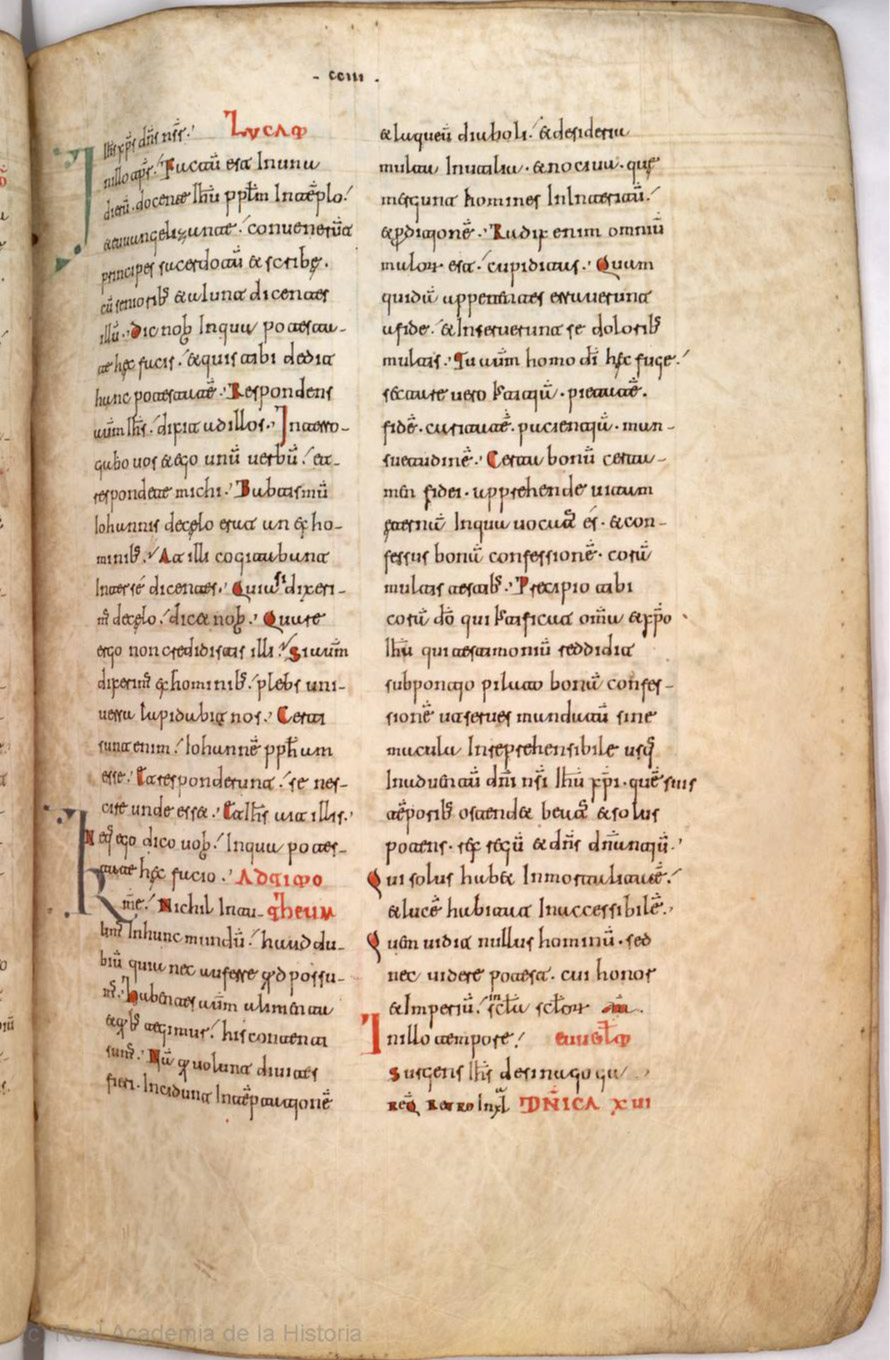 - ccııı -
ihs xp̄s dn̄s nsr̄. LUCAM
In illo tp̄re. Factū est In unū
dierū. docente ihū pplm̄ In tēplo.
et euuangelizante. conuenerūt
principes sacerdotū et scribę.
cū seniorib; et aiunt dicentes
illū. Dic nob̄ In qua potesta-
te hęc facis. et quis tibi dedit
hanc potestatē. Respondens
aūm ihs̄. dixit ad illos. Interro-
gabo uos et ego unū uerbū. et
respondete michi. Babtismū
Iohannis de cęlo erat an ex ho-
minib;. At illi cogitabant
Inter sē dicentes. Quia si dixeri-
m̄ de cęlo. dicet nob̄. Quare
ergo non credidistis illi. Si aūm
dixerim̄ ex hominib;. plebs uni-
uersa lapidabit nos. Certi
sunt enim. Iohannē pph̄am
esse. Et responderunt. se nes-
cire unde esset. Et ihs̄ ait illis.
Neq̄ ego dico uob̄. In qua potes-
tate hęc facio. AD TIMO
Kr̄me. Nichil Intu- THEUM
lim̄ In hunc mundū. haud du-
biū quia nec auferre quod possu-
m̄. Habentes aūm alimenta
et quib; tegimur. his contenti
sum̄. Nā qui uolunt diuites
fieri. Incidunt In tēptationē
et laqueū diaboli. et desideria
multa Inutilia. et nociua. quę
mergunt homines In Interitū.
et perditionē. Radix enim omniū
malorum est. cupiditas. Quam
quidā appetentes errauerunt
a fide. et Inseruerunt se dolorib;
multis. Tu aūm homo dī hęc fuge.
sectare uero Iustitiā. pietatē.
fidē. caritatē. patientiā. man-
suetudinē. Certa bonū certa-
mēn fidei. apprehende uitam
ęternā In qua uocatus ēs. et con-
fessus bonā confessionē. corā
multis testib;. Precipio tibi
corā dō qui uiuificat om̄a et xp̄o
ihū qui testimoniū reddidit
sub pontio pilato bonā confes-
sionē ut serues mandatū sine
macula Inreprehensibile usq̄
In aduentū dn̄i nsī ihū xp̄i. quē suis
tēporib; ostendet beatus et solus
potens. rex regū et dn̄s dn̄antiū.
Qui solus habet Inmortalitatē.
et lucē habitat Inaccessibilē.
Quēm uidit nullus hominū. sed
nec uidere potest. cui honor
et Imperiū. In sc̄la sc̄lorum am̄.
In illo tempore. EUUGLM
Surgens ihs̄ de sinagoga
DN̄ICA XIII